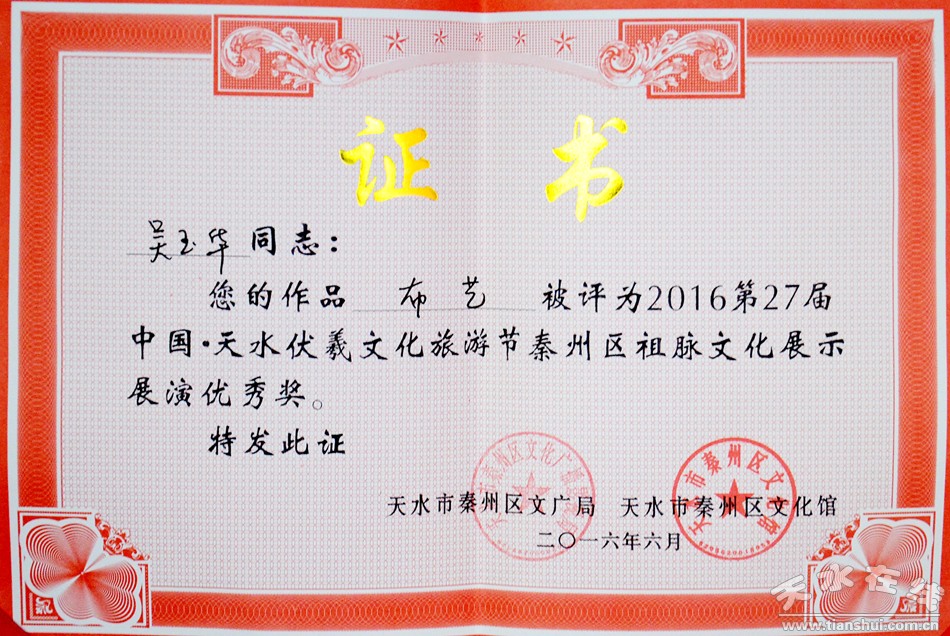 证书
吴玉华同志：
您的作品 布艺 被评为2016第27届
中国·天水伏羲文化旅游节秦州区祖脉文化展示
展演优秀奖。
特发此证
天水市秦州区文广局 天水市秦州区文化馆
二〇一六年六月
天水在线
www.tianshui.com.cn